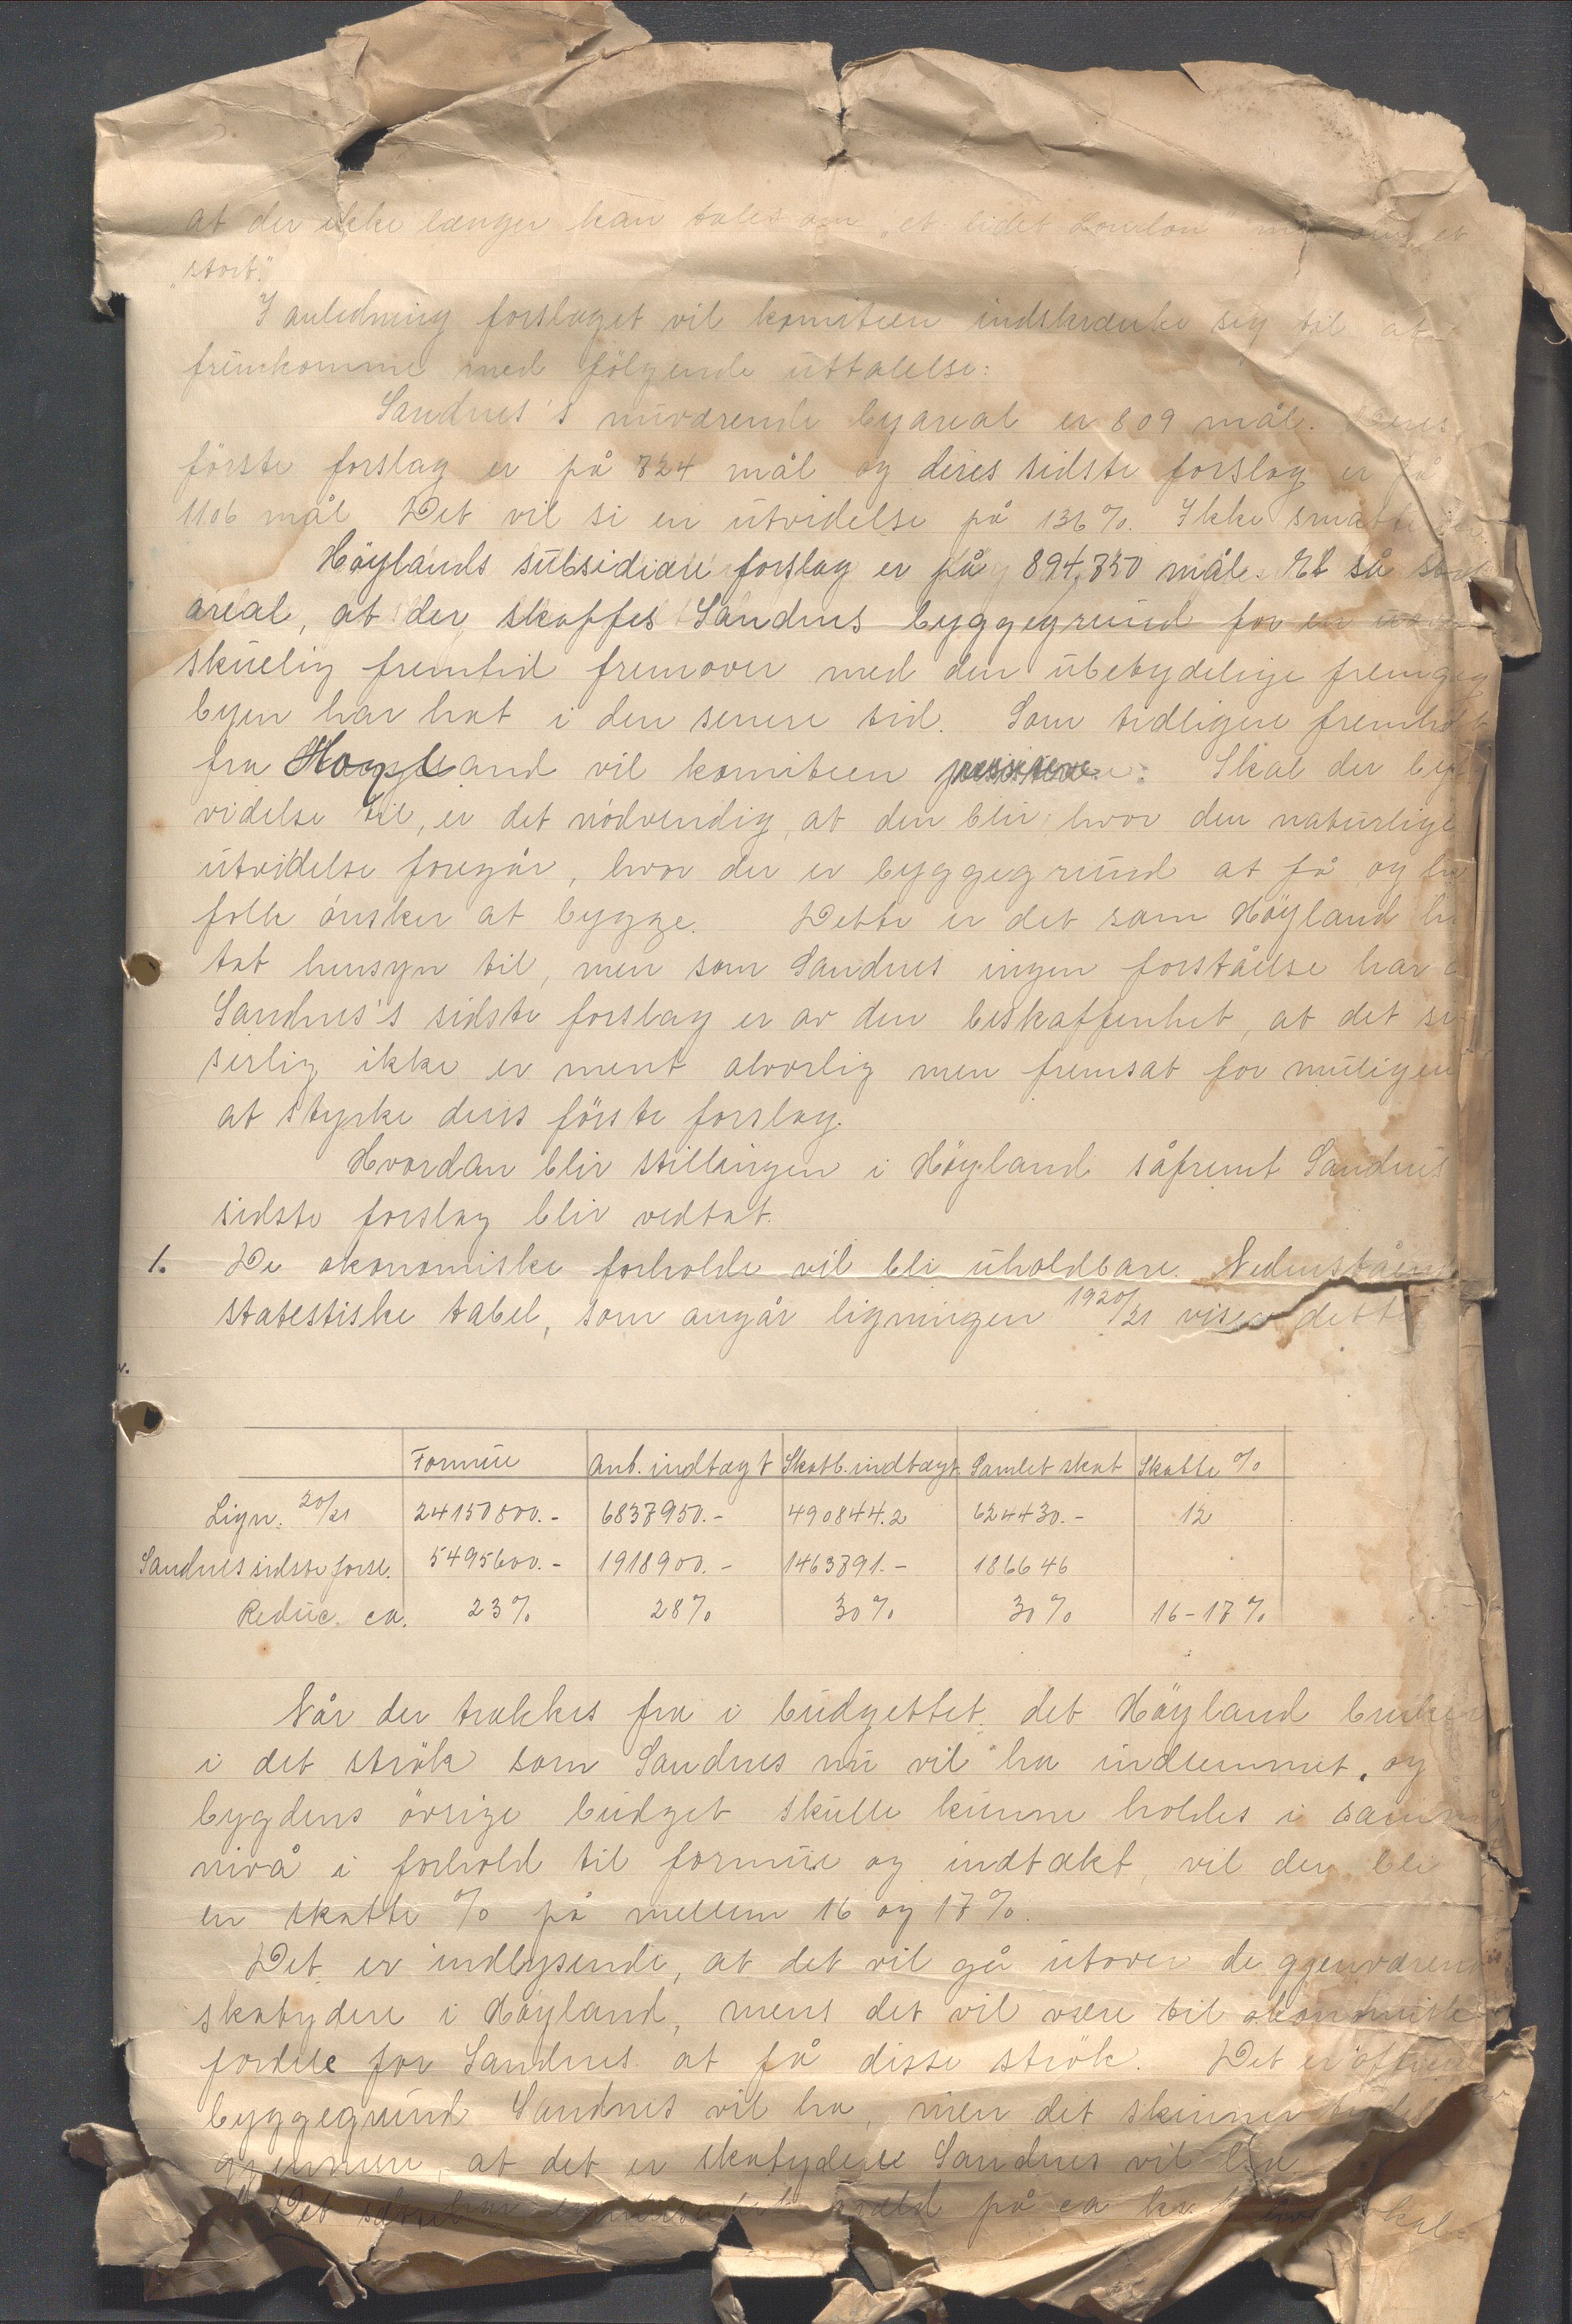 at der ikke længer kan tales om „et lidet London" men om et
„stort."
I anledning forslaget vil komiteen indskrænke sig til at
fremkomme med følgende uttalelse:
Sandnes's nuværende byareal er 809 mål. Deres
förste forslag er på 724 mål og deres sidste forslag er på
1106 mål Det vil si en utvidelse på 136%. Ikke småtterier.
Höylands subsidiære forslag er på 894,750 mål. Et så stort
areal, at der skaffes Sandnes byggegrund for en uover
skuelig fremtid fremover med den ubetydelige fremgang
byen har hat i den senere tid. Som tidligere fremholdt
fra Høyland vil komiteen Skal der byut
videlse til, er det nödvendig, at den blir, hvor den naturlige
utvidelse foregår, hvor der er byggegrund at få og hvor
folk önsker at bygge. Dette er det som Höyland har
tat hensyn til, men som Sandnes ingen forståelse har
Sandnes's sidste forslag er av den beskaffenhet, at det
serlig ikke er ment alvorlig men fremsat for muligens
at styrke deres förste forslag.
Hvordan blir stillingen i Höyland såfremt Sandnes
sidste forslag blir vedtat.
1. De økonomiske forholde vil bli uholdbare. Nedenståen
statestiske tabel, som angår ligningen 1920/21 viser dette
Formue Ant. indtægt Skatb. indtægt Samlet skat Skatte %
Lign. 20/21 24150800.- 6837950.- 490844.2 624430.- 12
Sandnes sidste forsl. 5495600.- 1918900.- 1463891.- 186646
Reduc. ca. 23% 28% 30% 30% 16-17%
Når der trækkes fra i budgettet det Höyland bruker
i det strök som Sandnes nu vil ha indlemmet, og
bygdens övrige budget skulle kunne holdes i samme
nivå i forhold til formue og indtækt, vil der bli
en skatte % på mellem 16 og 17%.
Det er indlysende, at det vil gå utover de gjenværende
skatydere i Höyland, mens det vil være til økonomisk
fordele for Sandnes at få disse strök. Det er
byggegrund Sandnes vil ha, men det skinner
gjennem, at det er skatydere Sandnes vil ha
Det på ca kr.